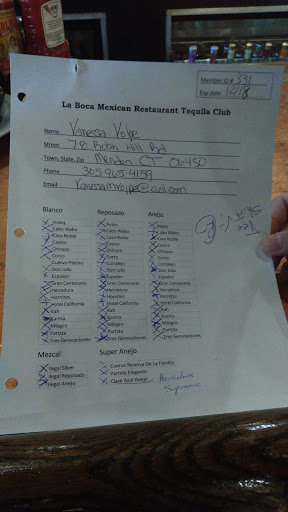 Member ID # 331
Exp date 12/18
La Boca Mexican Restaurant Tequila Club
Name Vanessa Volpe
Street 78 Robin Hill Rd
Town, State, Zip Meriden CT 06450
Phone 305 965 4159
Email
Blanco
Avion
Cabo Wabo
Casa Noble
Casino
Chinaco
Corzo
Cuervo Platino
Don Julio
Espolon
Gran Centenario
Herradura
Hornitos
Hotel California
Kah
Karma
Milagro
Partida
Tres Generaciones
Reposado
Avion
Cabo Wabo
Casa Noble
Casino
Chinaco
Corzo
Corralejo
Don Julio
Espolon
Gran Centenario
Herradura
Hornitos
Hotel California
Kah
Karma
Milagro
Partida
Tres Generaciones
Anejo
Avion
Cabo Wabo
Casa Noble
Casino
Chinaco
Corzo
Corralejo
Don Julio
Espolon
Gran Centenario
Herradura
Hornitos
Hotel California
Kah
Karma
Milagro
Partida
Tres Generaciones
Mezcal
Ilegal Silver
Ilegal Reposado
Ilegal Anejo
Super Anejo
Cuervo Reserva De La Familia
Partida Elegante
Clase Azul Anejo
Herradura
Suprema